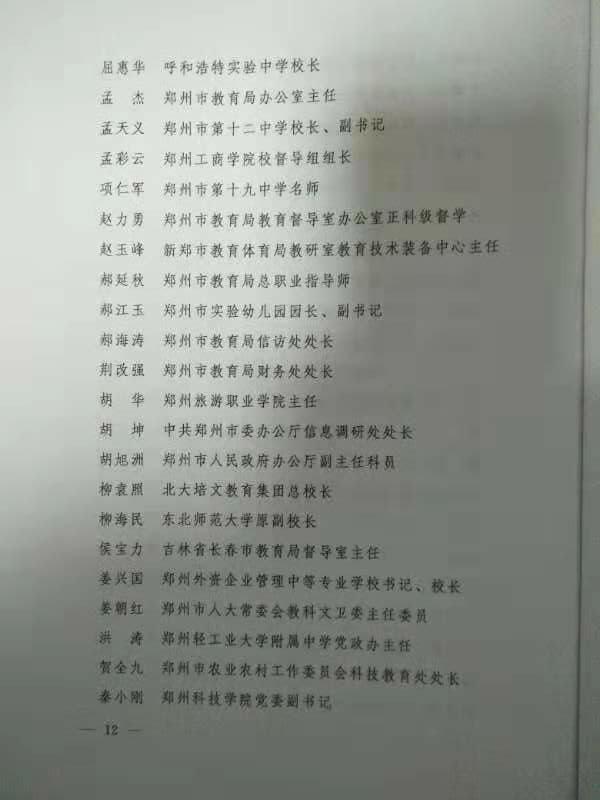 屈惠华 呼和浩特实验中学校长
孟 杰 郑州市教育局办公室主任
孟天义 郑州市第十二中学校长、副书记
孟彩云 郑州工商学院校督导组组长
项仁军 郑州市第十九中学名师
赵力勇 郑州市教育局教育督导室办公室正科级督学
赵玉峰 新郑市教育体育局教研室教育技术装备中心主任
郝延秋 郑州市教育局总职业指导师
郝江玉 郑州市实验幼儿园园长、副书记
郝海涛 郑州市教育局信访处处长
荆改强 郑州市教育局财务处处长
胡 华 郑州旅游职业学院主任
胡 坤 中共郑州市委办公厅信息调研处处长
胡旭洲 郑州市人民政府办公厅副主任科员
柳袁照 北大培文教育集团总校长
柳海民 东北师范大学原副校长
侯宝力 吉林省长春市教育局督导室主任
姜兴国 郑州外资企业管理中等专业学校书记、校长
姜朝红 郑州市人大常委会教科文卫委主任委员
洪 涛 郑州轻工业大学附属中学党政办主任
贺全九 郑州市农业农村工作委员会科技教育处处长
秦小刚 郑州科技学院党委副书记
— 12 —